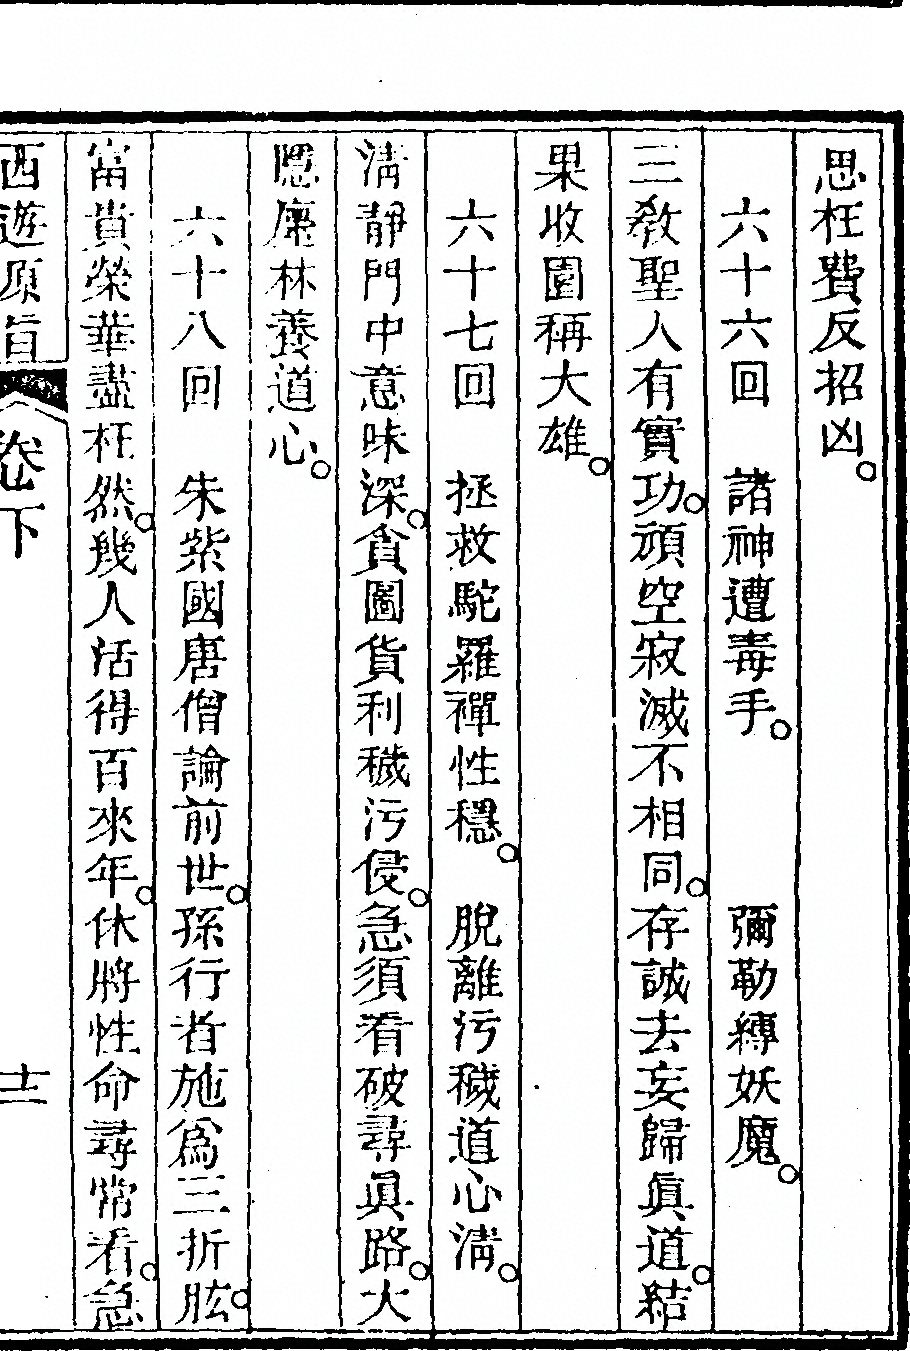 思枉費反招凶。
六十六回　諸神遭毒手。　彌勒縛妖魔。
三敎聖人有實功。頑空寂滅不相同。存誠去妄歸眞道。結
果收園稱大雄。
六十七回　拯救駝羅禪性穩。　脫離污穢道心淸。
淸靜門中意味深。貪圖貨利穢污侵。急須看破尋眞路。大
隱廛林養道心。
六十八回　朱紫國唐僧論前世。孫行者施爲三折肱。
富貴榮華盡枉然。幾人活得百來年。休將性命尋常看。急
西遊原旨　卷下　十二